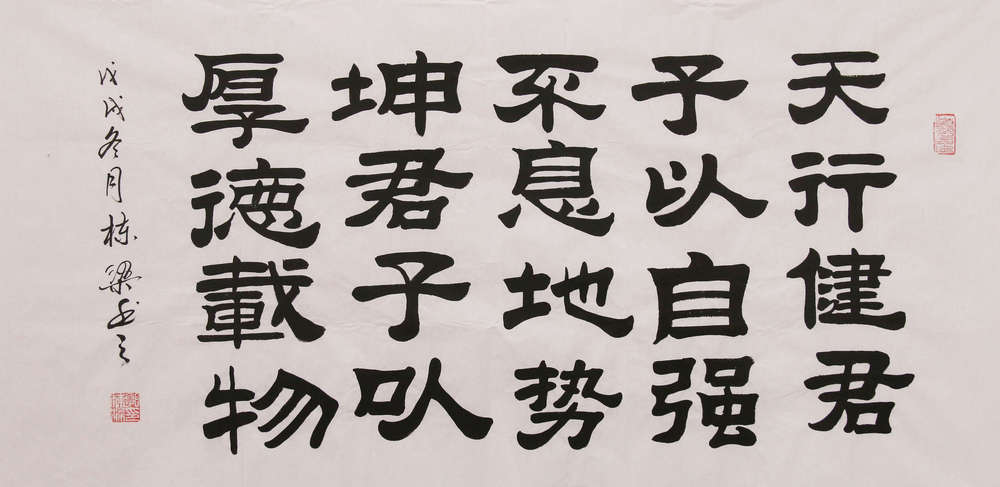 天行健君
子以自强
不息地势
坤君子以
厚德載物
戊戌冬月栋梁书之